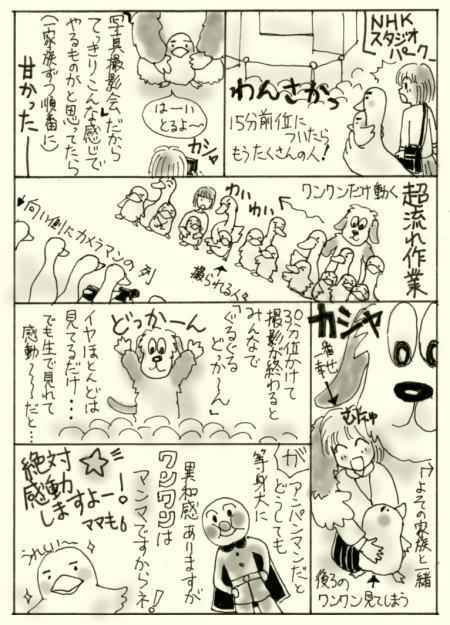 NHK
スタジオ
パーク
わんさかっ
15分前位に
ついたら
もうたくさんの人!
写真撮影会だから
てっきりこんな感じで
やるものがと思ってたら
(一家族ずつ順番に)
甘かったー
はーい
とるよ〜
カシャ
超流れ作業
ワンワンだけ動く
わいわい
撮られる人々
向い側にカメラマンの列
カシャ
一番幸せ
むちゅ
よその家族と一緒
後ろの
ワンワン見てしまう
30分位かけて
撮影が終わると
みんなで
「ぐるぐる
どっか〜ん」
どっかーん
イヤほとんどは
見てるだけ…
でも生で見れて
感動〜〜〜だと…
アンパンマンだと
どうしても
等身大に
ガ
異和感ありますが
ワンワンは
マンマですからネ!
絶対
感動
しますよー!
ママも
うれしいー